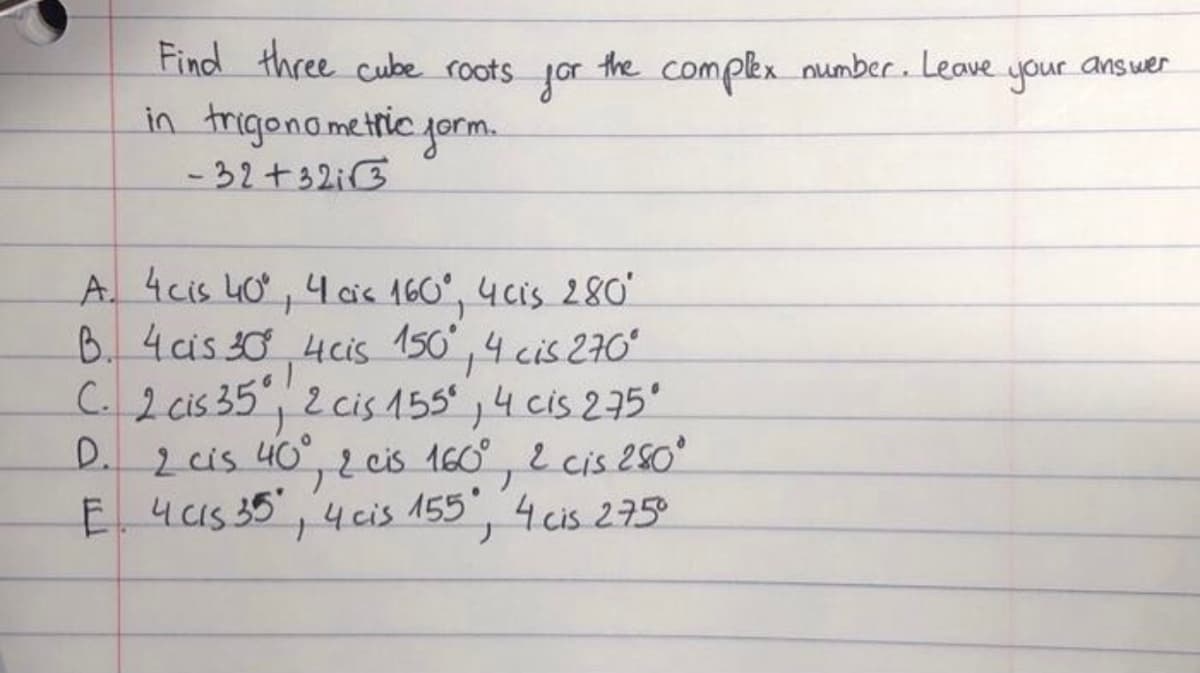 Find three cube roots for the complex number. Leave your answer
in trigonometric form.
-32+32i√3
A. 4cis 40°, 4 cis 160°, 4cis 280°
B. 4 cis 30°, 4cis 150°, 4 cis 270°
C. 2 cis 35°, 2 cis 155°, 4 cis 275°
D. 2 cis 40°, 2 cis 160°, 2 cis 280°
E. 4 cis 35°, 4 cis 155°, 4 cis 275°